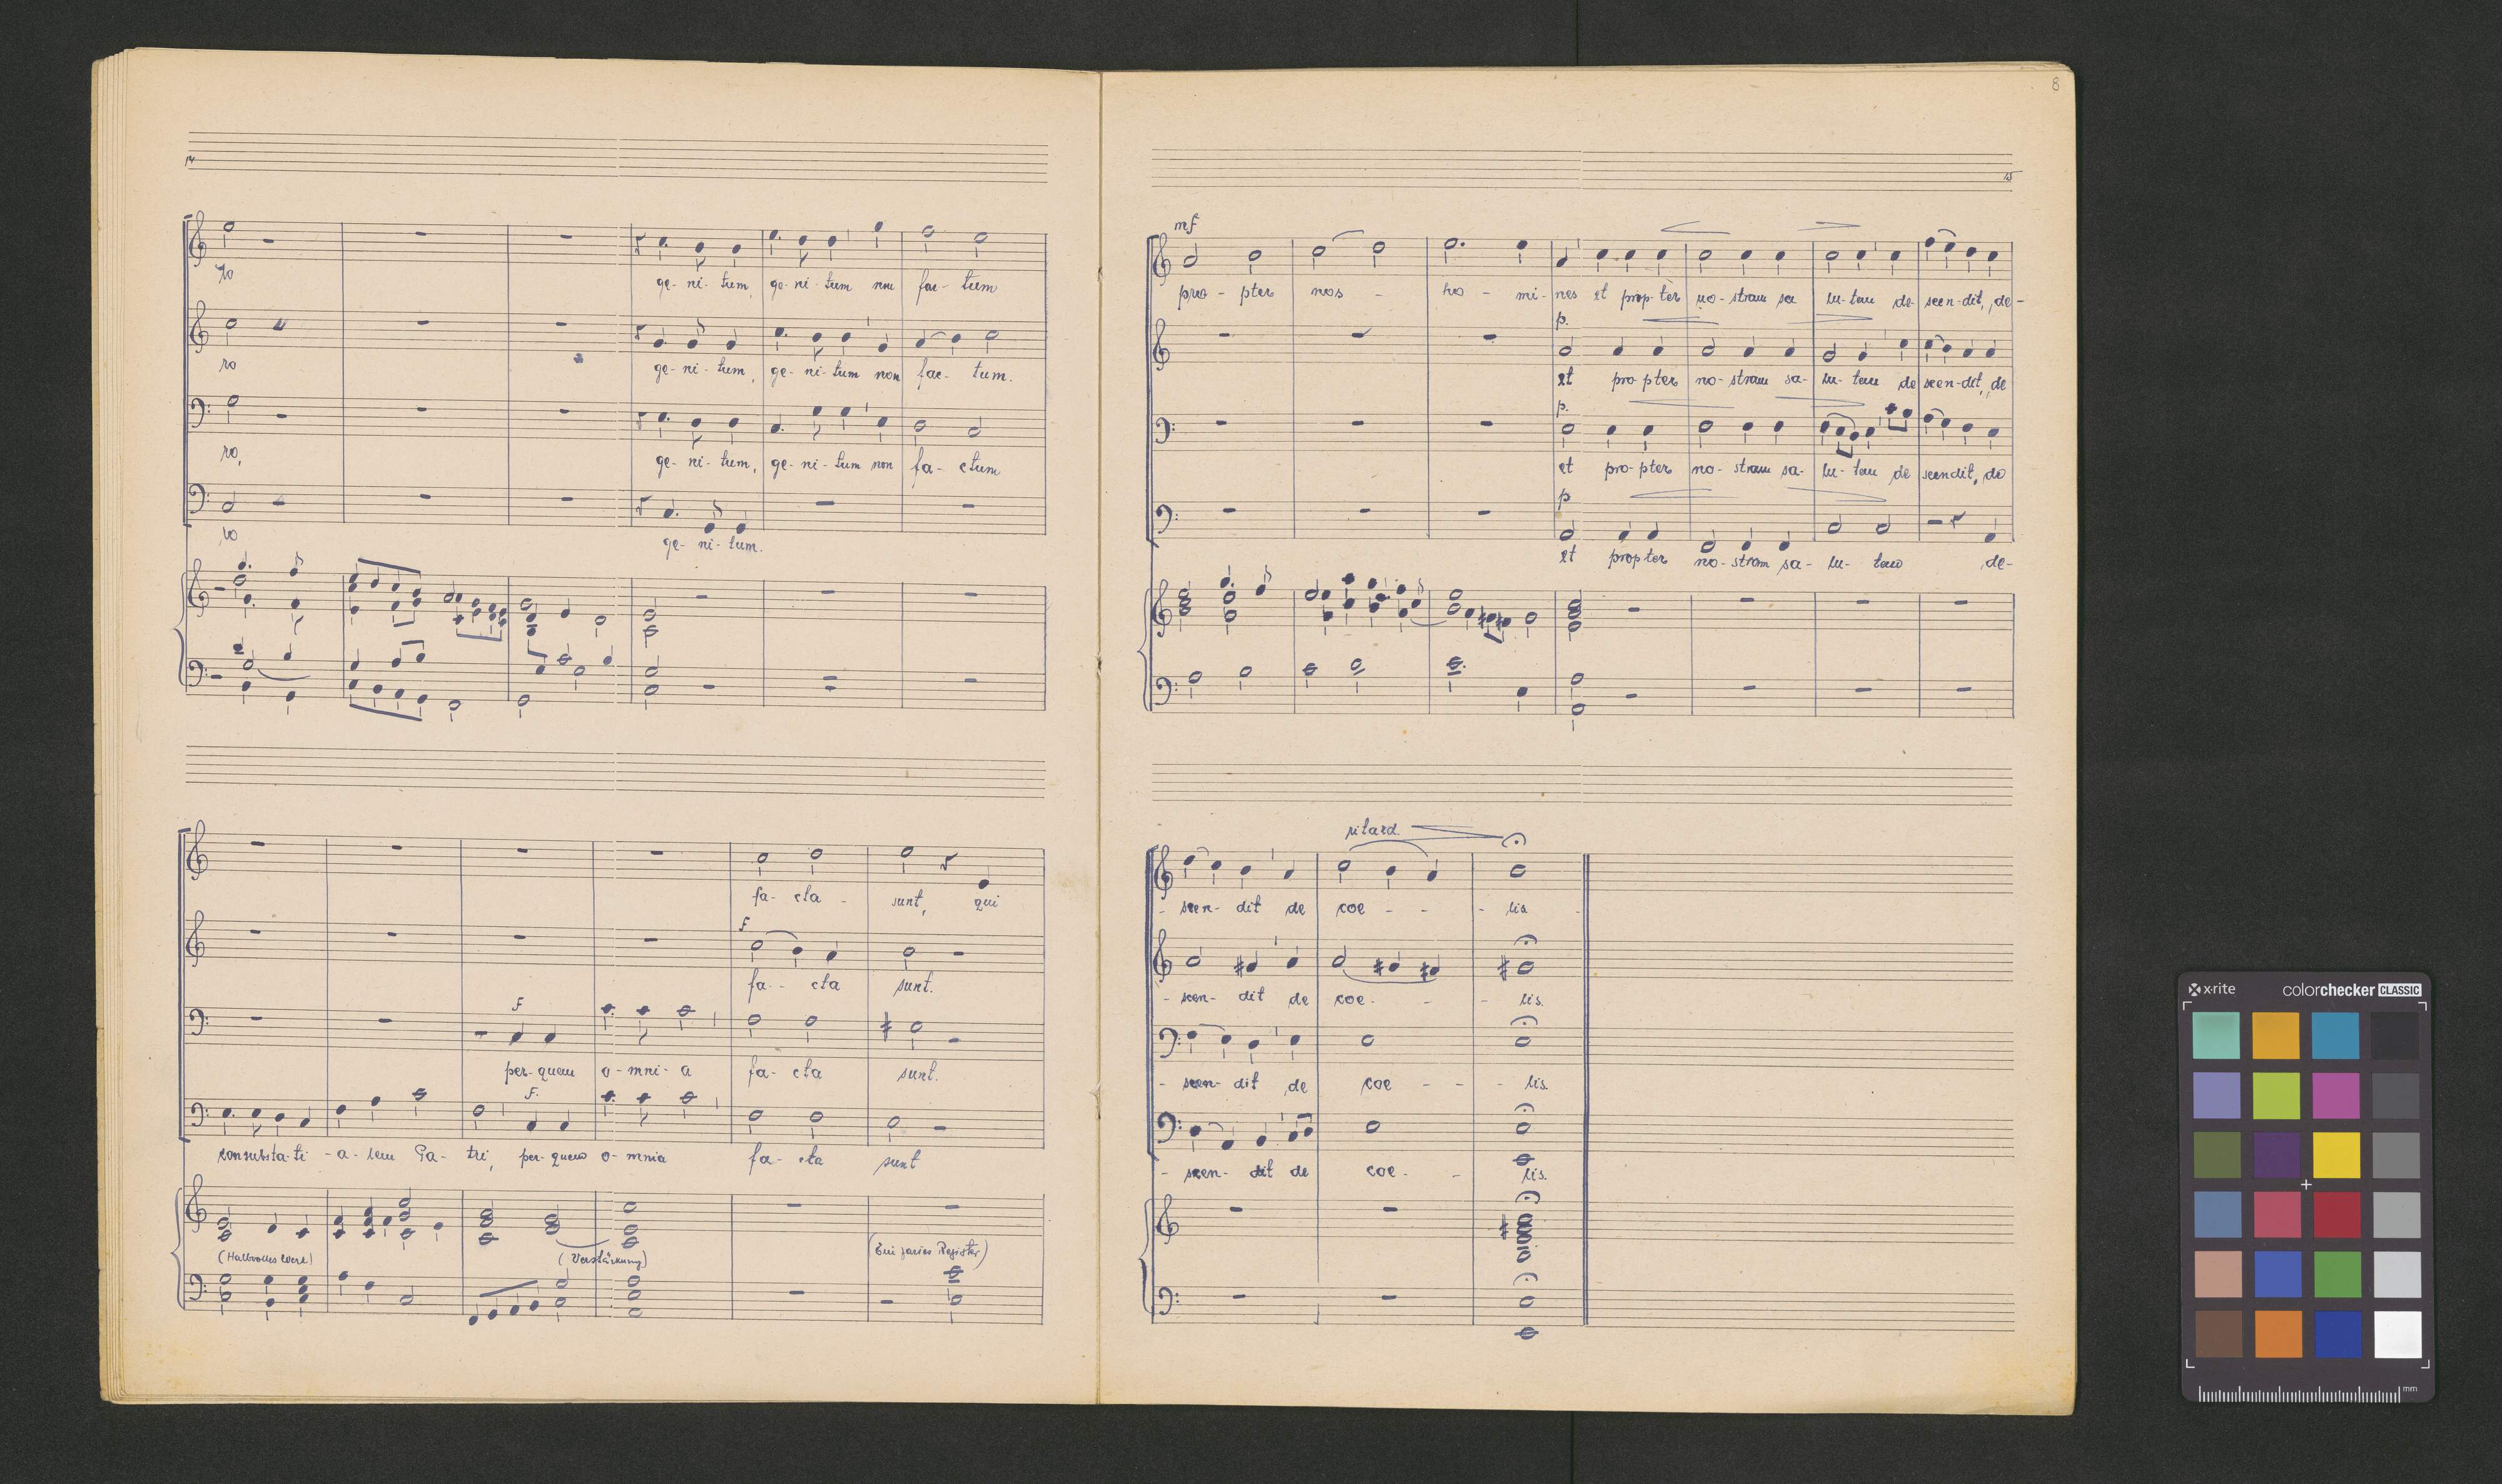 14
ro
ge- ni- tum, ge- ni- tum non fac- tum
ro
ge- ni- tum, ge- ni- tum non fac- tum.
ro,
ge- ni- tum, ge- ni- tum non fa- ctum
ro
ge- ni- tum.
fa- cta - sunt, qui
F
fa- - cta sunt.
F
per- quem o- mni- a fa- cta sunt.
F.
consubsta- ti - a- lem Pa- tri, per- quem o- mnia fa- cta sunt
(Halbvolles Werk) (Verstärkung)
Register)
8
15
mf
pro- pter nos - ho- mi- nes et prop- ter no- stram sa lu- tem de- scen- dit, de-
p.
et pro- pter no- stram sa- lu- tem de scen- dit, de
p.
et pro- pter no- stram sa- lu- tem de scendit, de
p
et propter no- stram sa- lu- tem de-
ritard.
- scen- dit de coe - - - lis
- scen- dit de coe- - - lis.
- scen- dit de coe - - - lis.
- scen- dit de coe- - lis.
x·rite colorchecker CLASSIC
mm